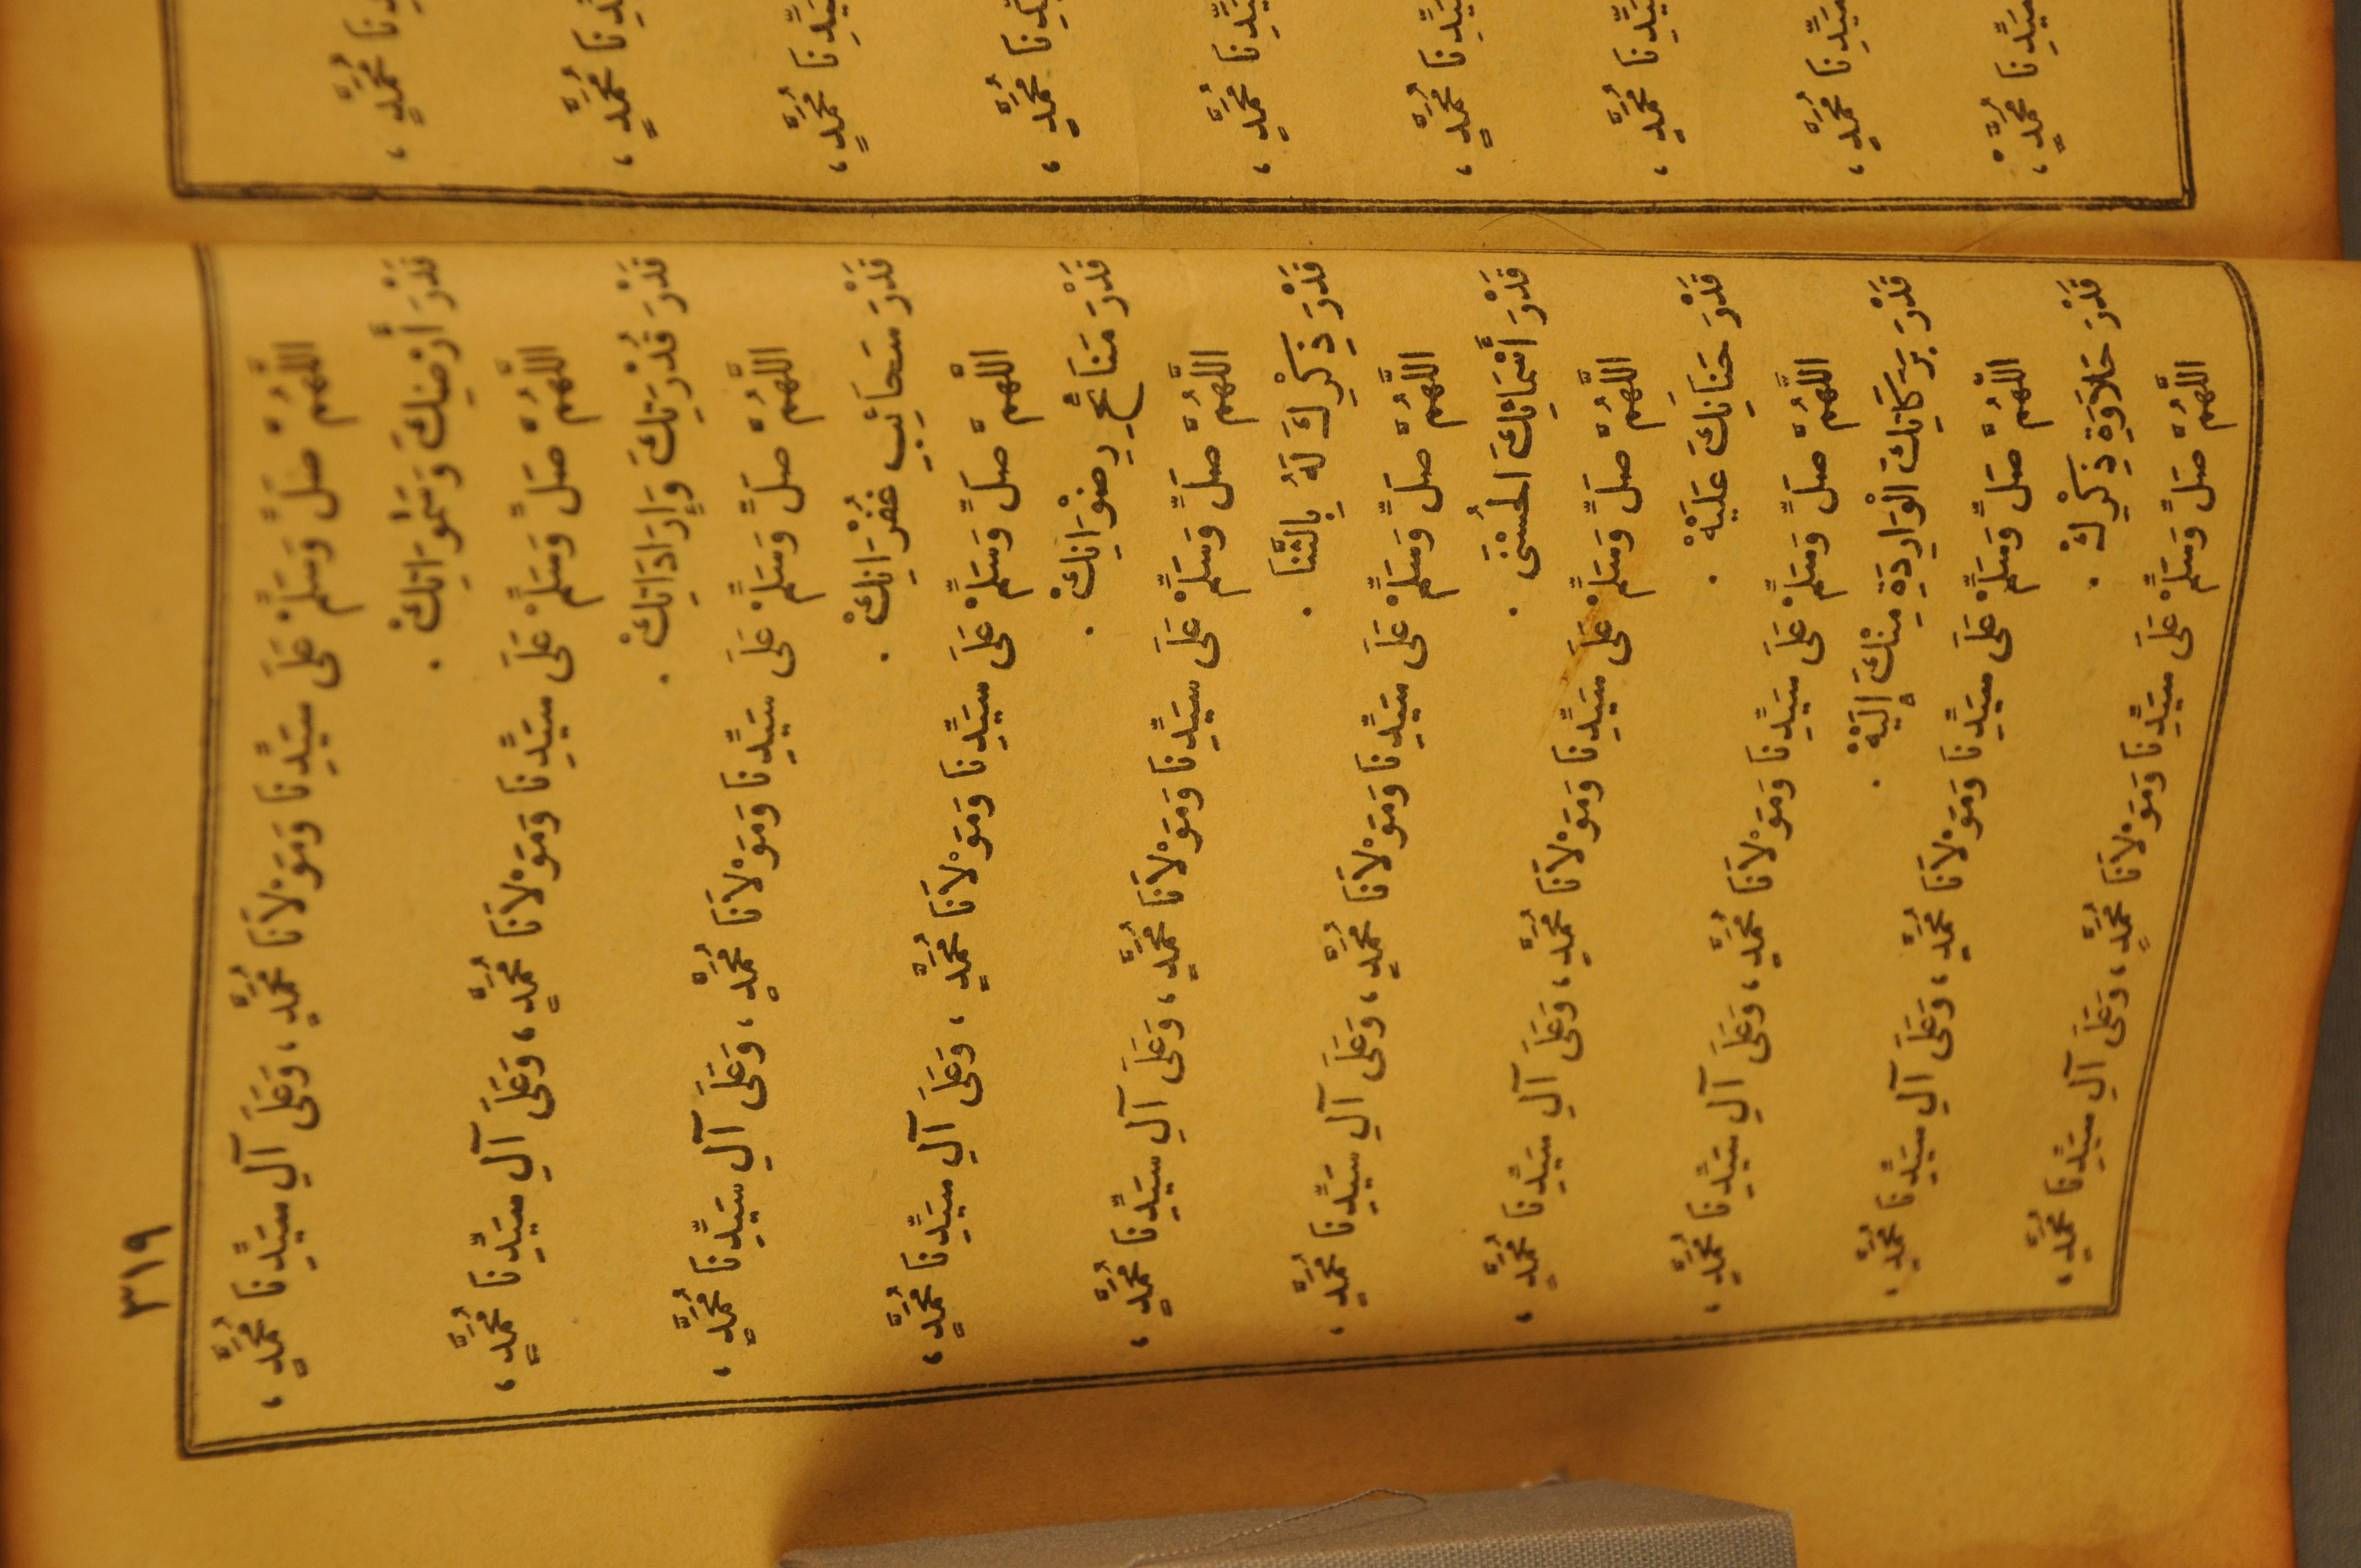 مُحَمَّدٍ،
مُحَمَّدٍ،
سَيِّدِنَا مُحَمَّدٍ،
سَيِّدِنَا مُحَمَّدٍ،
سَيِّدِنَا مُحَمَّدٍ،
سَيِّدِنَا مُحَمَّدٍ،
سَيِّدِنَا مُحَمَّدٍ،
سَيِّدِنَا مُحَمَّدٍ،
سَيِّدِنَا مُحَمَّدٍ،
٣١٩
اللَّهُمَّ صَلِّ وَسَلِّمْ عَلَى سَيِّدِنَا وَمَوْلَانَا مُحَمَّدٍ، وَعَلَى آلِ سَيِّدِنَا مُحَمَّدٍ،
قَدْرَ أَرْضِكَ وَسَمَوَاتِكْ.
اللَّهُمَّ صَلِّ وَسَلِّمْ عَلَى سَيِّدِنَا وَمَوْلَانَا مُحَمَّدٍ، وَعَلَى آلِ سَيِّدِنَا مُحَمَّدٍ،
قَدْرَ قُدْرَتِكَ وَإِرَادَاتِكْ.
اللَّهُمَّ صَلِّ وَسَلِّمْ عَلَى سَيِّدِنَا وَمَوْلَانَا مُحَمَّدٍ، وَعَلَى آلِ سَيِّدِنَا مُحَمَّدٍ،
قَدْرَ سَحَائِبِ غُفْرَانِكْ.
اللَّهُمَّ صَلِّ وَسَلِّمْ عَلَى سَيِّدِنَا وَمَوْلَانَا مُحَمَّدٍ، وَعَلَى آلِ سَيِّدِنَا مُحَمَّدٍ،
قَدْرَ مَنَائِحِ رِضْوَانِكْ.
اللَّهُمَّ صَلِّ وَسَلِّمْ عَلَى سَيِّدِنَا وَمَوْلَانَا مُحَمَّدٍ، وَعَلَى آلِ سَيِّدِنَا مُحَمَّدٍ،
قَدْرَ ذِكْرِكَ لَهُ بِالثَّنَا.
اللَّهُمَّ صَلِّ وَسَلِّمْ عَلَى سَيِّدِنَا وَمَوْلَانَا مُحَمَّدٍ، وَعَلَى آلِ سَيِّدِنَا مُحَمَّدٍ،
قَدْرَ أَسْمَائِكَ الْحُسْنَى.
اللَّهُمَّ صَلِّ وَسَلِّمْ عَلَى سَيِّدِنَا وَمَوْلَانَا مُحَمَّدٍ، وَعَلَى آلِ سَيِّدِنَا مُحَمَّدٍ،
قَدْرَ حَنَانِكَ عَلَيْهْ.
اللَّهُمَّ صَلِّ وَسَلِّمْ عَلَى سَيِّدِنَا وَمَوْلَانَا مُحَمَّدٍ، وَعَلَى آلِ سَيِّدِنَا مُحَمَّدٍ،
قَدْرَ بَرَكَاتِكَ الْوَارِدَةِ مِنْكَ إِلَيْهْ.
اللَّهُمَّ صَلِّ وَسَلِّمْ عَلَى سَيِّدِنَا وَمَوْلَانَا مُحَمَّدٍ، وَعَلَى آلِ سَيِّدِنَا مُحَمَّدٍ،
قَدْرَ حَلَاوَةِ ذِكْرِكْ.
اللَّهُمَّ صَلِّ وَسَلِّمْ عَلَى سَيِّدِنَا وَمَوْلَانَا مُحَمَّدٍ، وَعَلَى آلِ سَيِّدِنَا مُحَمَّدٍ،